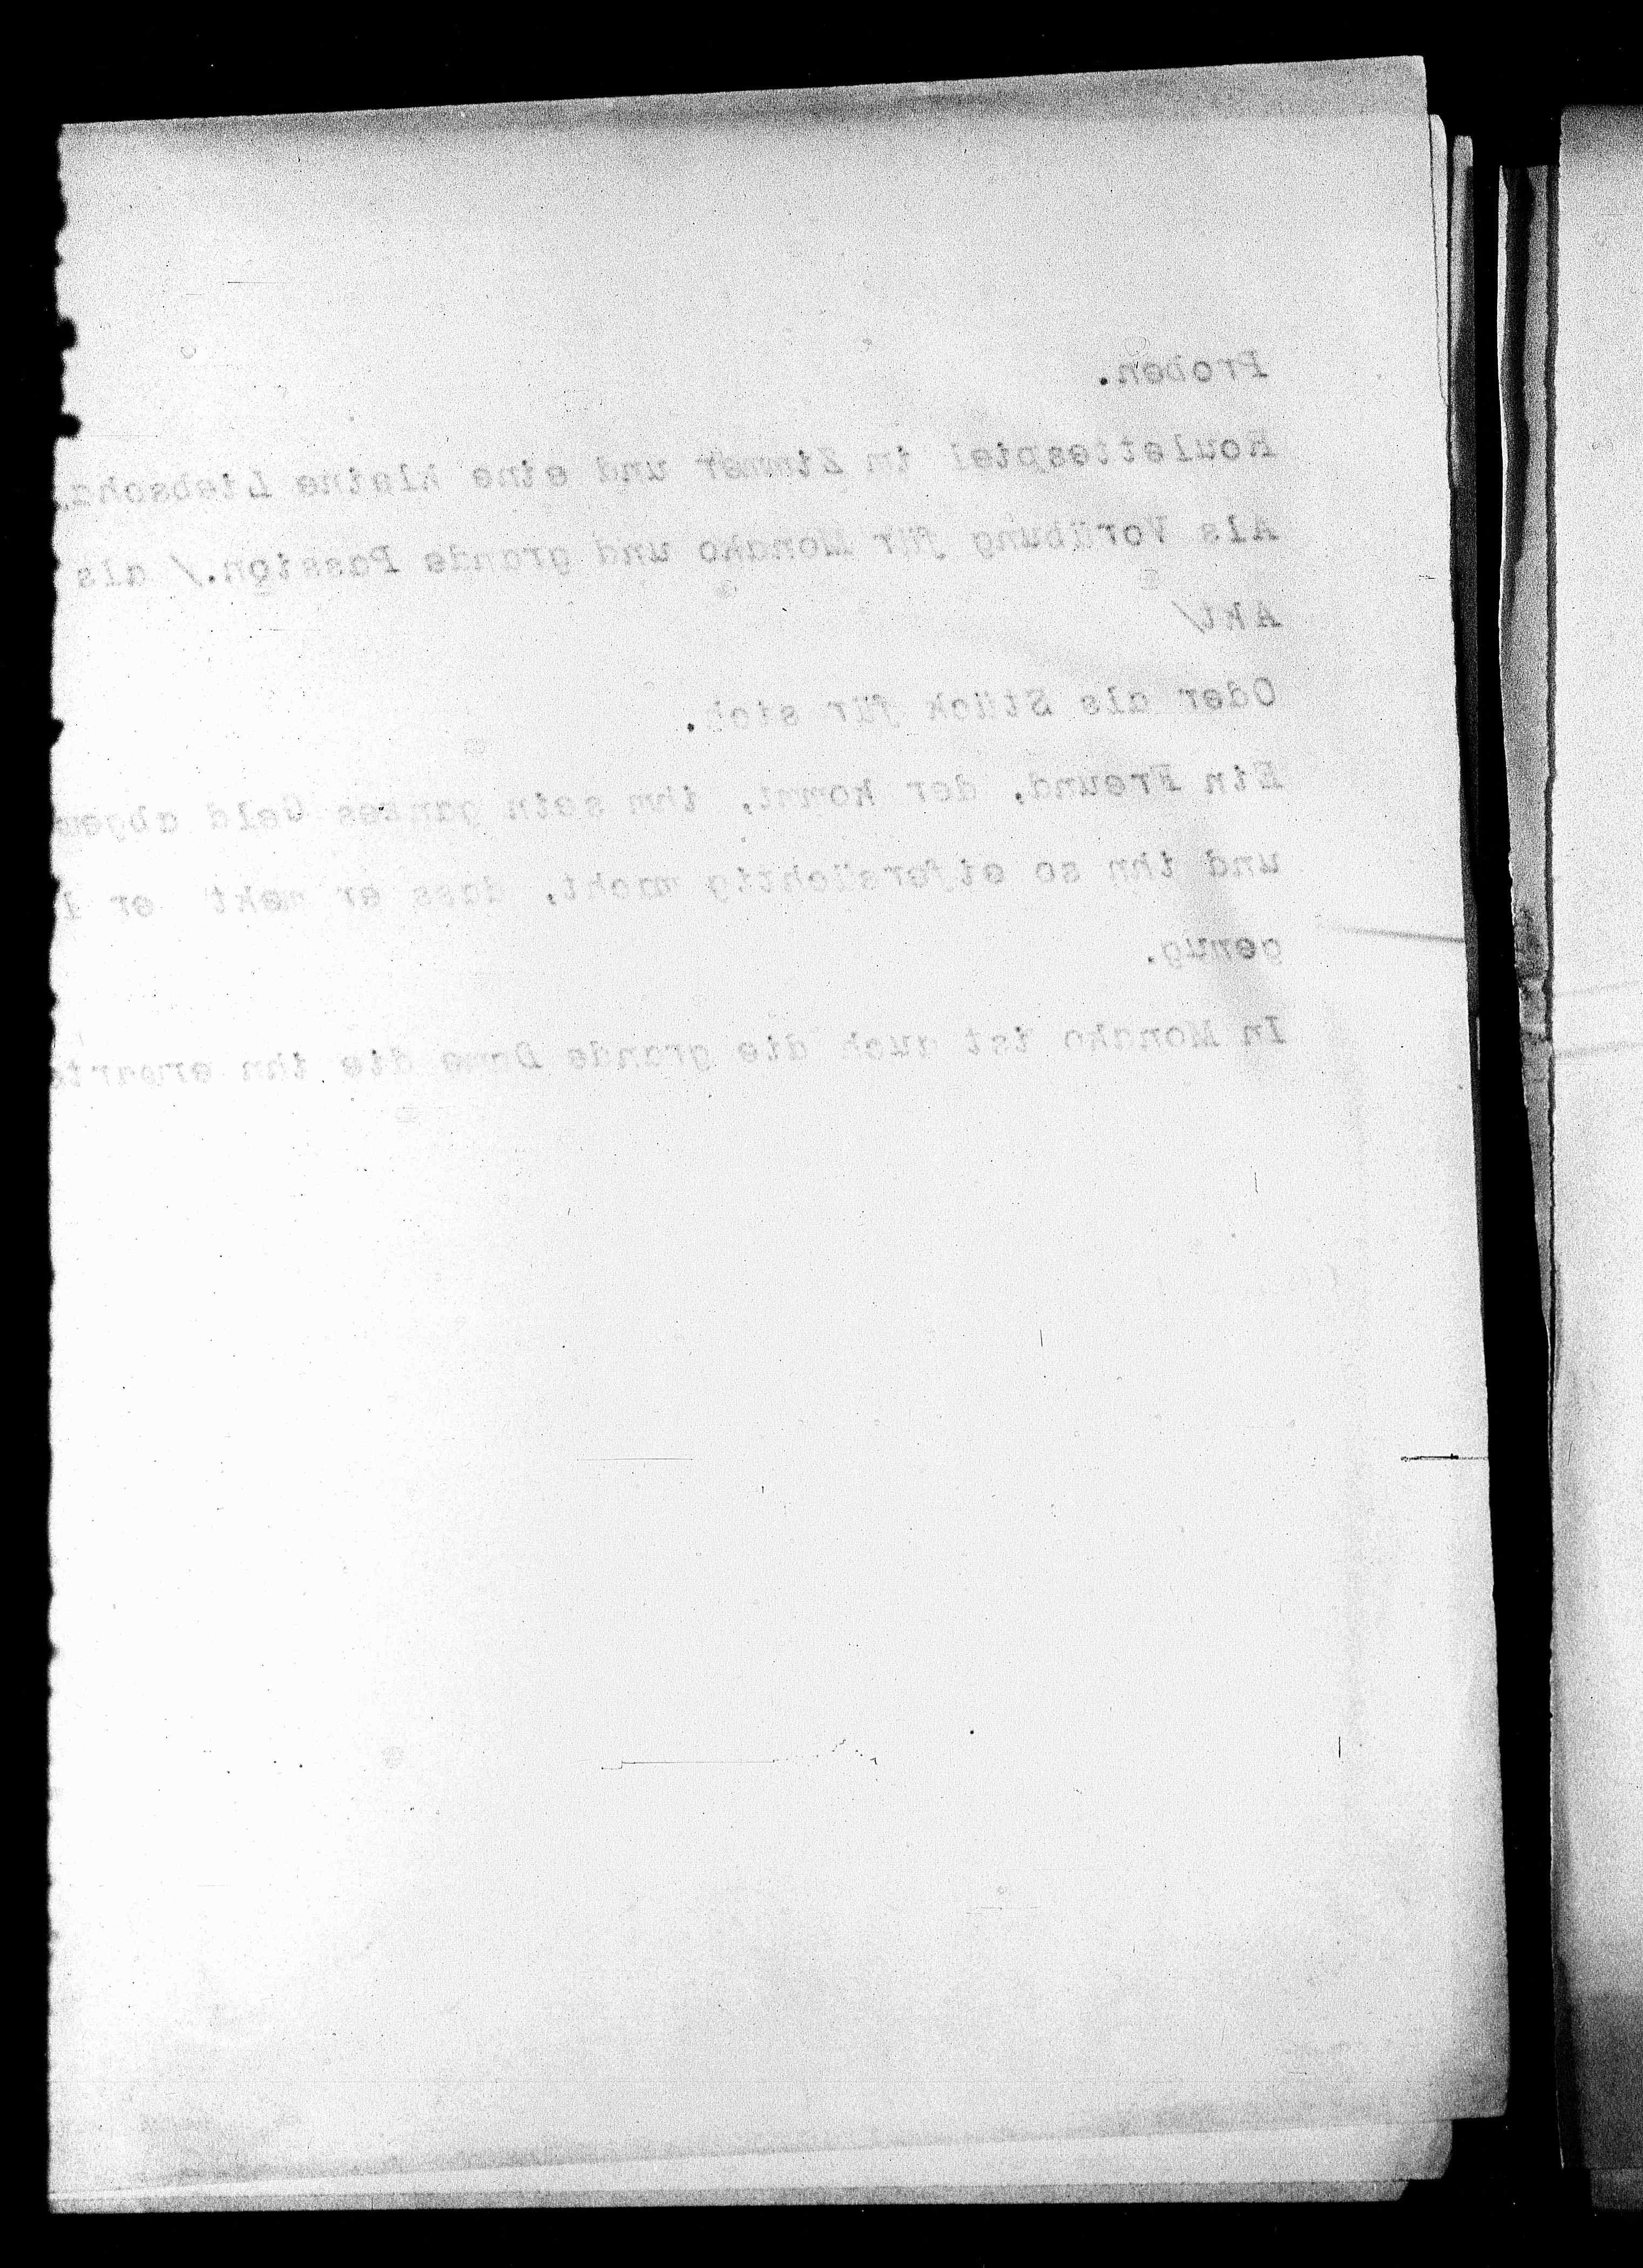 Proben.
Roulettespiel im Zimmer und eine kleine Liebscha
Als Vorübung für Monako und grande Passion./ als
Akt/
Oder als Stück für sich.
Ein Freund, der kommt, ihm sein ganzes Geld
und ihn so eifersüchtig macht, dass er er
genug.
In Monako ist auch die grande Dame die ihn erwarte